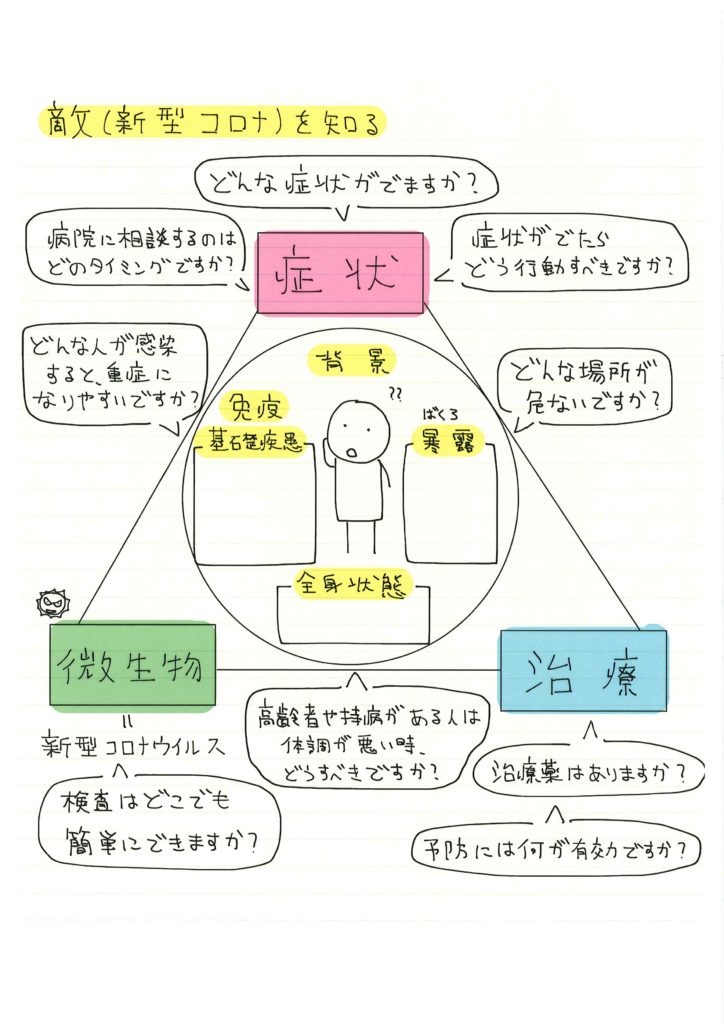 敵(新型コロナ)を知る
どんな症状がでますか?
病院に相談するのは
どのタイミングですか?
症状
症状がでたら
どう行動すべきですか?
どんな人が感染
すると、重症に
なりやすいですか?
背景
どんな場所が
危ないですか?
免疫
基礎疾患
??
ばくろ
暴露
全身状態
微生物
=
新型コロナウイルス
治療
高齢者や持病がある人は
体調が悪い時、
どうすべきですか?
治療薬はありますか?
検査はどこでも
簡単にできますか?
予防には何が有効ですか?